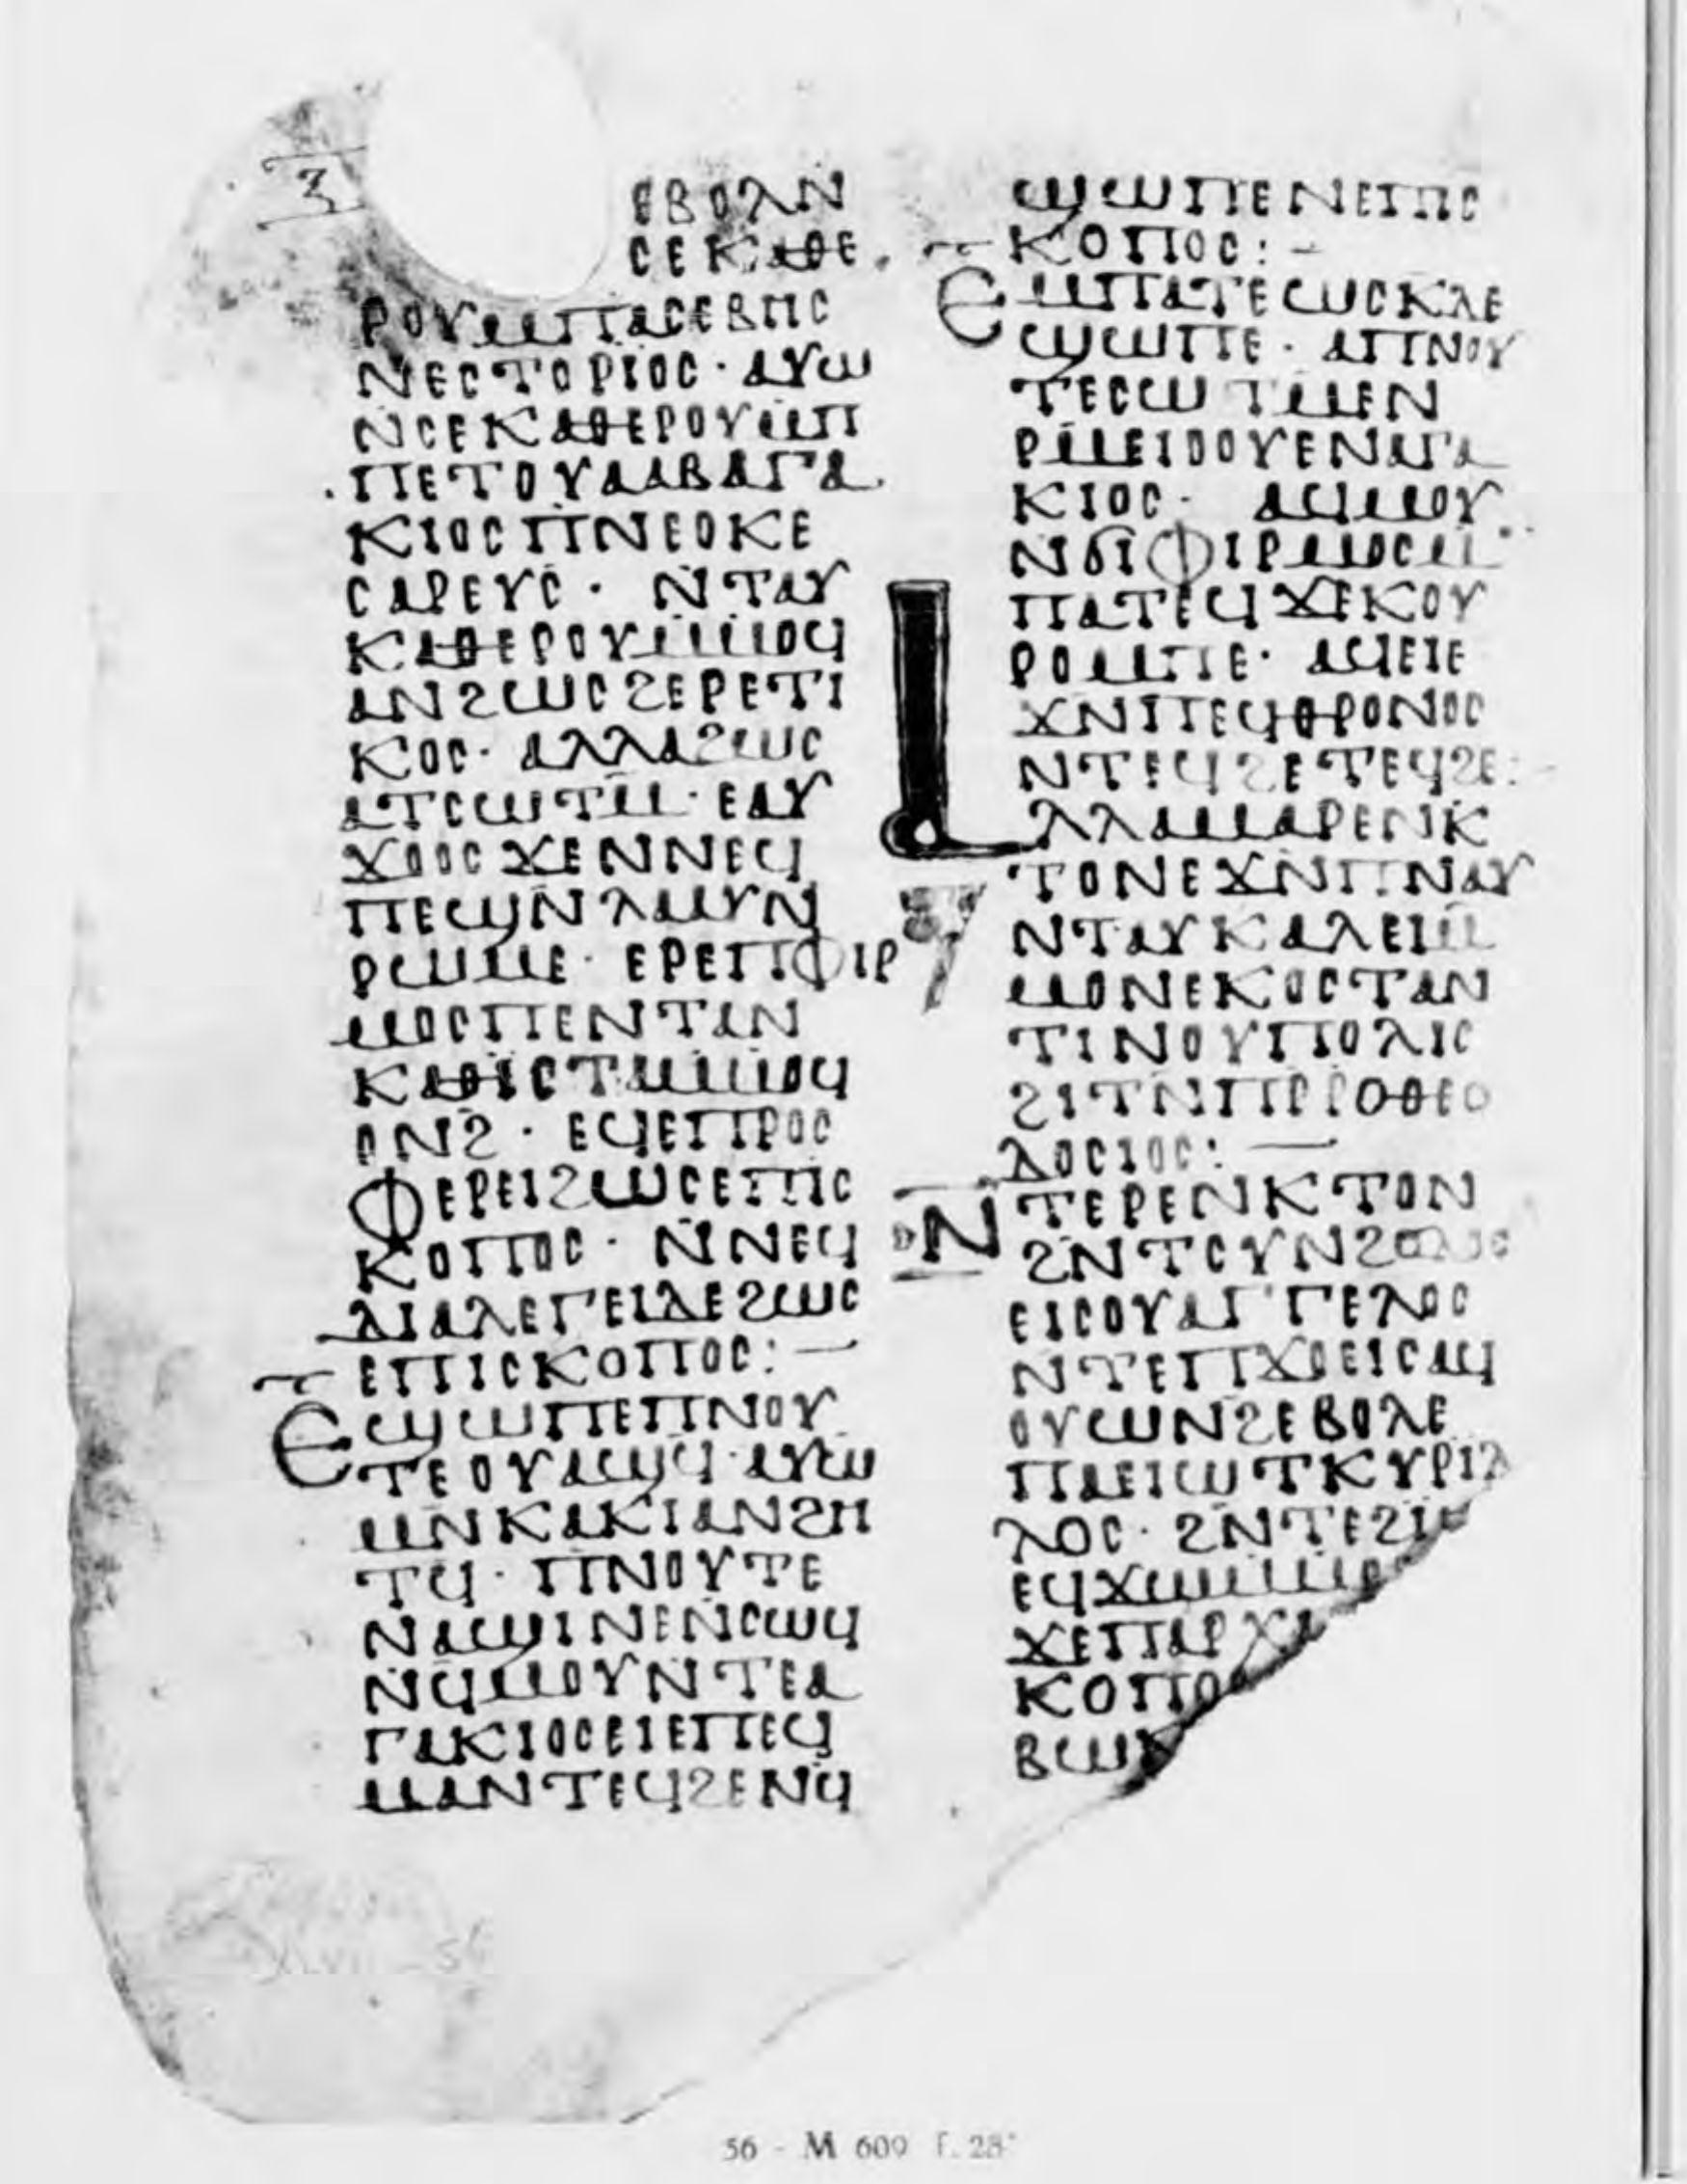 ⲍ
ⲉⲃⲟⲗⲛ
ⲥⲉⲕⲁⲑⲉ
ⲣⲟⲩⲙⲡⲁⲥⲉⲃⲏⲥ
ⲛⲉⲥⲧⲟⲣⲓⲟⲥ· ⲁⲩⲱ
ⲛⲥⲉⲕⲁⲑⲉⲣⲟⲩⲙⲡ
ⲡⲉⲧⲟⲩⲁⲁⲃⲁⲅⲁ
ⲕⲓⲟⲥⲡⲛⲉⲟⲕⲉ
ⲥⲁⲣⲉⲩⲥ· ⲛⲧⲁⲩ
ⲕⲁⲑⲉⲣⲟⲩⲙⲙⲟϥ
ⲁⲛϩⲱⲥϩⲉⲣⲉⲧⲓ
ⲕⲟⲥ· ⲁⲗⲗⲁϩⲱⲥ
ⲁⲧⲥⲱⲧⲙ· ⲉⲁⲩ
ϫⲟⲟⲥϫⲉⲛⲛⲉϥ
ⲡⲉϣⲛⲗⲁⲩⲛ
ⲣⲱⲙⲉ· ⲉⲣⲉⲡⲫⲓⲣ
ⲙⲟⲥⲡⲉⲛⲧⲁⲛ
ⲕⲁⲑⲓⲥⲧⲁⲙⲙⲟϥ
ⲟⲛϩ· ⲉϥⲉⲡⲣⲟⲥ
ⲫⲉⲣⲉⲓϩⲱⲥⲉⲡⲓⲥ
ⲕⲟⲡⲟⲥ· ⲛⲛⲉϥ
ⲇⲓⲁⲗⲉⲅⲉⲓⲇⲉϩⲱⲥ
ⲉⲡⲓⲥⲕⲟⲡⲟⲥ:—
ⲉϣⲱⲡⲉⲡⲛⲟⲩ
ⲧⲉⲟⲩⲁϣϥ· ⲁⲩⲱ
ⲙⲛⲕⲁⲕⲓⲁⲛϩⲏ
ⲧϥ· ⲡⲛⲟⲩⲧⲉ
ⲛⲁϣⲓⲛⲉⲛⲥⲱϥ
ⲛϥⲙⲟⲩⲛⲧⲉⲁ
ⲅⲁⲕⲓⲟⲥⲉⲓⲉⲡⲉϥ
ⲙⲁⲛⲧⲉϥϩⲉⲛϥ
ϣⲱⲡⲉⲛⲉⲡⲓⲥ
ⲕⲟⲡⲟⲥ:–
ⲉⲙⲡⲁⲧⲉⲥⲱⲥⲕⲇⲉ
ϣⲱⲡⲉ· ⲁⲡⲛⲟⲩ
ⲧⲉⲥⲱⲧⲙⲉⲛ
ⲣⲙⲉⲓⲟⲟⲩⲉⲛⲁⲅⲁ
ⲕⲓⲟⲥ· ⲁϥⲙⲟⲩ
ⲛϭⲓⲫⲓⲣⲙⲟⲥⲙ
ⲡⲁⲧⲉϥϫⲉⲕⲟⲩ
ⲣⲟⲙⲡⲉ· ⲁϥⲉⲓⲉ
ϫⲛⲡⲉϥⲑⲣⲟⲛⲟⲥ
ⲛⲧⲉϥϩⲉⲧⲉϥϩⲉ:
ⲁⲗⲗⲁⲙⲁⲣⲉⲛⲕ
ⲧⲟⲛⲉϫⲛⲡⲛⲁⲩ
ⲛⲧⲁⲩⲕⲁⲗⲉⲓⲙ
ⲙⲟⲛⲉⲕⲟⲥⲧⲁⲛ
ⲧⲓⲛⲟⲩⲡⲟⲗⲓⲥ
ϩⲓⲧⲛⲡⲣⲣⲟⲑⲉⲟ
ⲇⲟⲥⲓⲟⲥ:—
ⲛⲧⲉⲣⲉⲛⲕⲧⲟⲛ
ϩⲛⲧⲥⲩⲛϩⲟⲇⲟⲥ
ⲉⲓⲥⲟⲩⲁⲅⲅⲉⲗⲟⲥ
ⲛⲧⲉⲡϫⲟⲉⲓⲥⲁϥ
ⲟⲩⲱⲛϩⲉⲃⲟⲗⲉ
ⲡⲁⲉⲓⲱⲧⲕⲩⲣⲓⲗ
ⲗⲟⲥ· ϩⲛⲧⲉϩⲓⲏ
ⲉϥϫⲱⲙⲙⲟ
ϫⲉⲡⲁⲣⲭ
ⲕⲟⲡⲟ
ⲃⲱⲕ
XLVII – 56
56 - M 609 f. 28ʳ